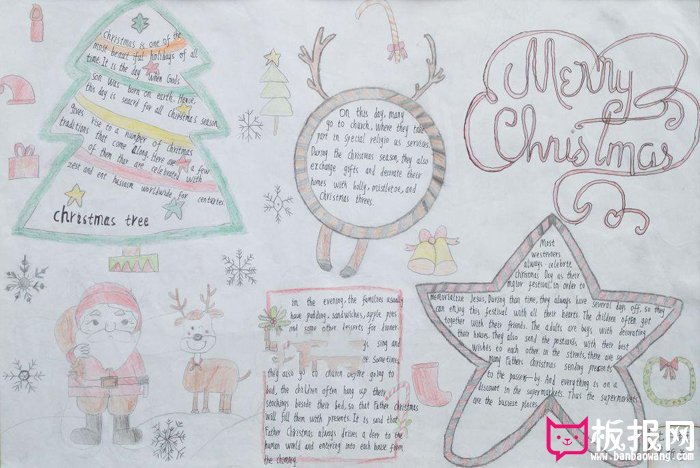 Christmas is one of the
most beaut ful holidays of all
time. It is the day when Gods
son was born on earth. Hence,
this day is seacrd for all Christmas season
gives rise to a number of Christmas
traditions that come along. there are a few
of them that are celebrated with
zest and ent husiasm worldwide for centuries
christmas tree
On this day, many
go to church, where they take
part in special religio us services.
During the Christmas season, they also
exchange gifts and decorate their
homes with holly, mistletoe, and
Christmas threes.
Merry
Christmas
in the evening, the families usually
have pudding, sandwiches, apple pies
and some other desserts for dinner.
sing and
Sometimes
they also go to church before going to
bed, the children often hang up their
stockings beside their bed, so that Father Christmas
will fill them with presents. It is said that
Father Christmas always drives a deer to the
human world and entering into each house from
the chimney.
Most
westerners
always celebrate
Christmas Day as their
major festival in order to
memorialize Jesus. During than time, they always have several days off, so they
can enjoy this festival with all their hearts. The children often got
together with their friends. The adults are buys with decorating
their houses. They also send the postcards with their best
wishes to each other. in the streets, there are so
many Fathers Christmas sending presents
to the passer-by. And everything is on a
discount in the supermarkets. Thus the supermarkets
are the bussiese places.
板报网
www.banbaowang.com